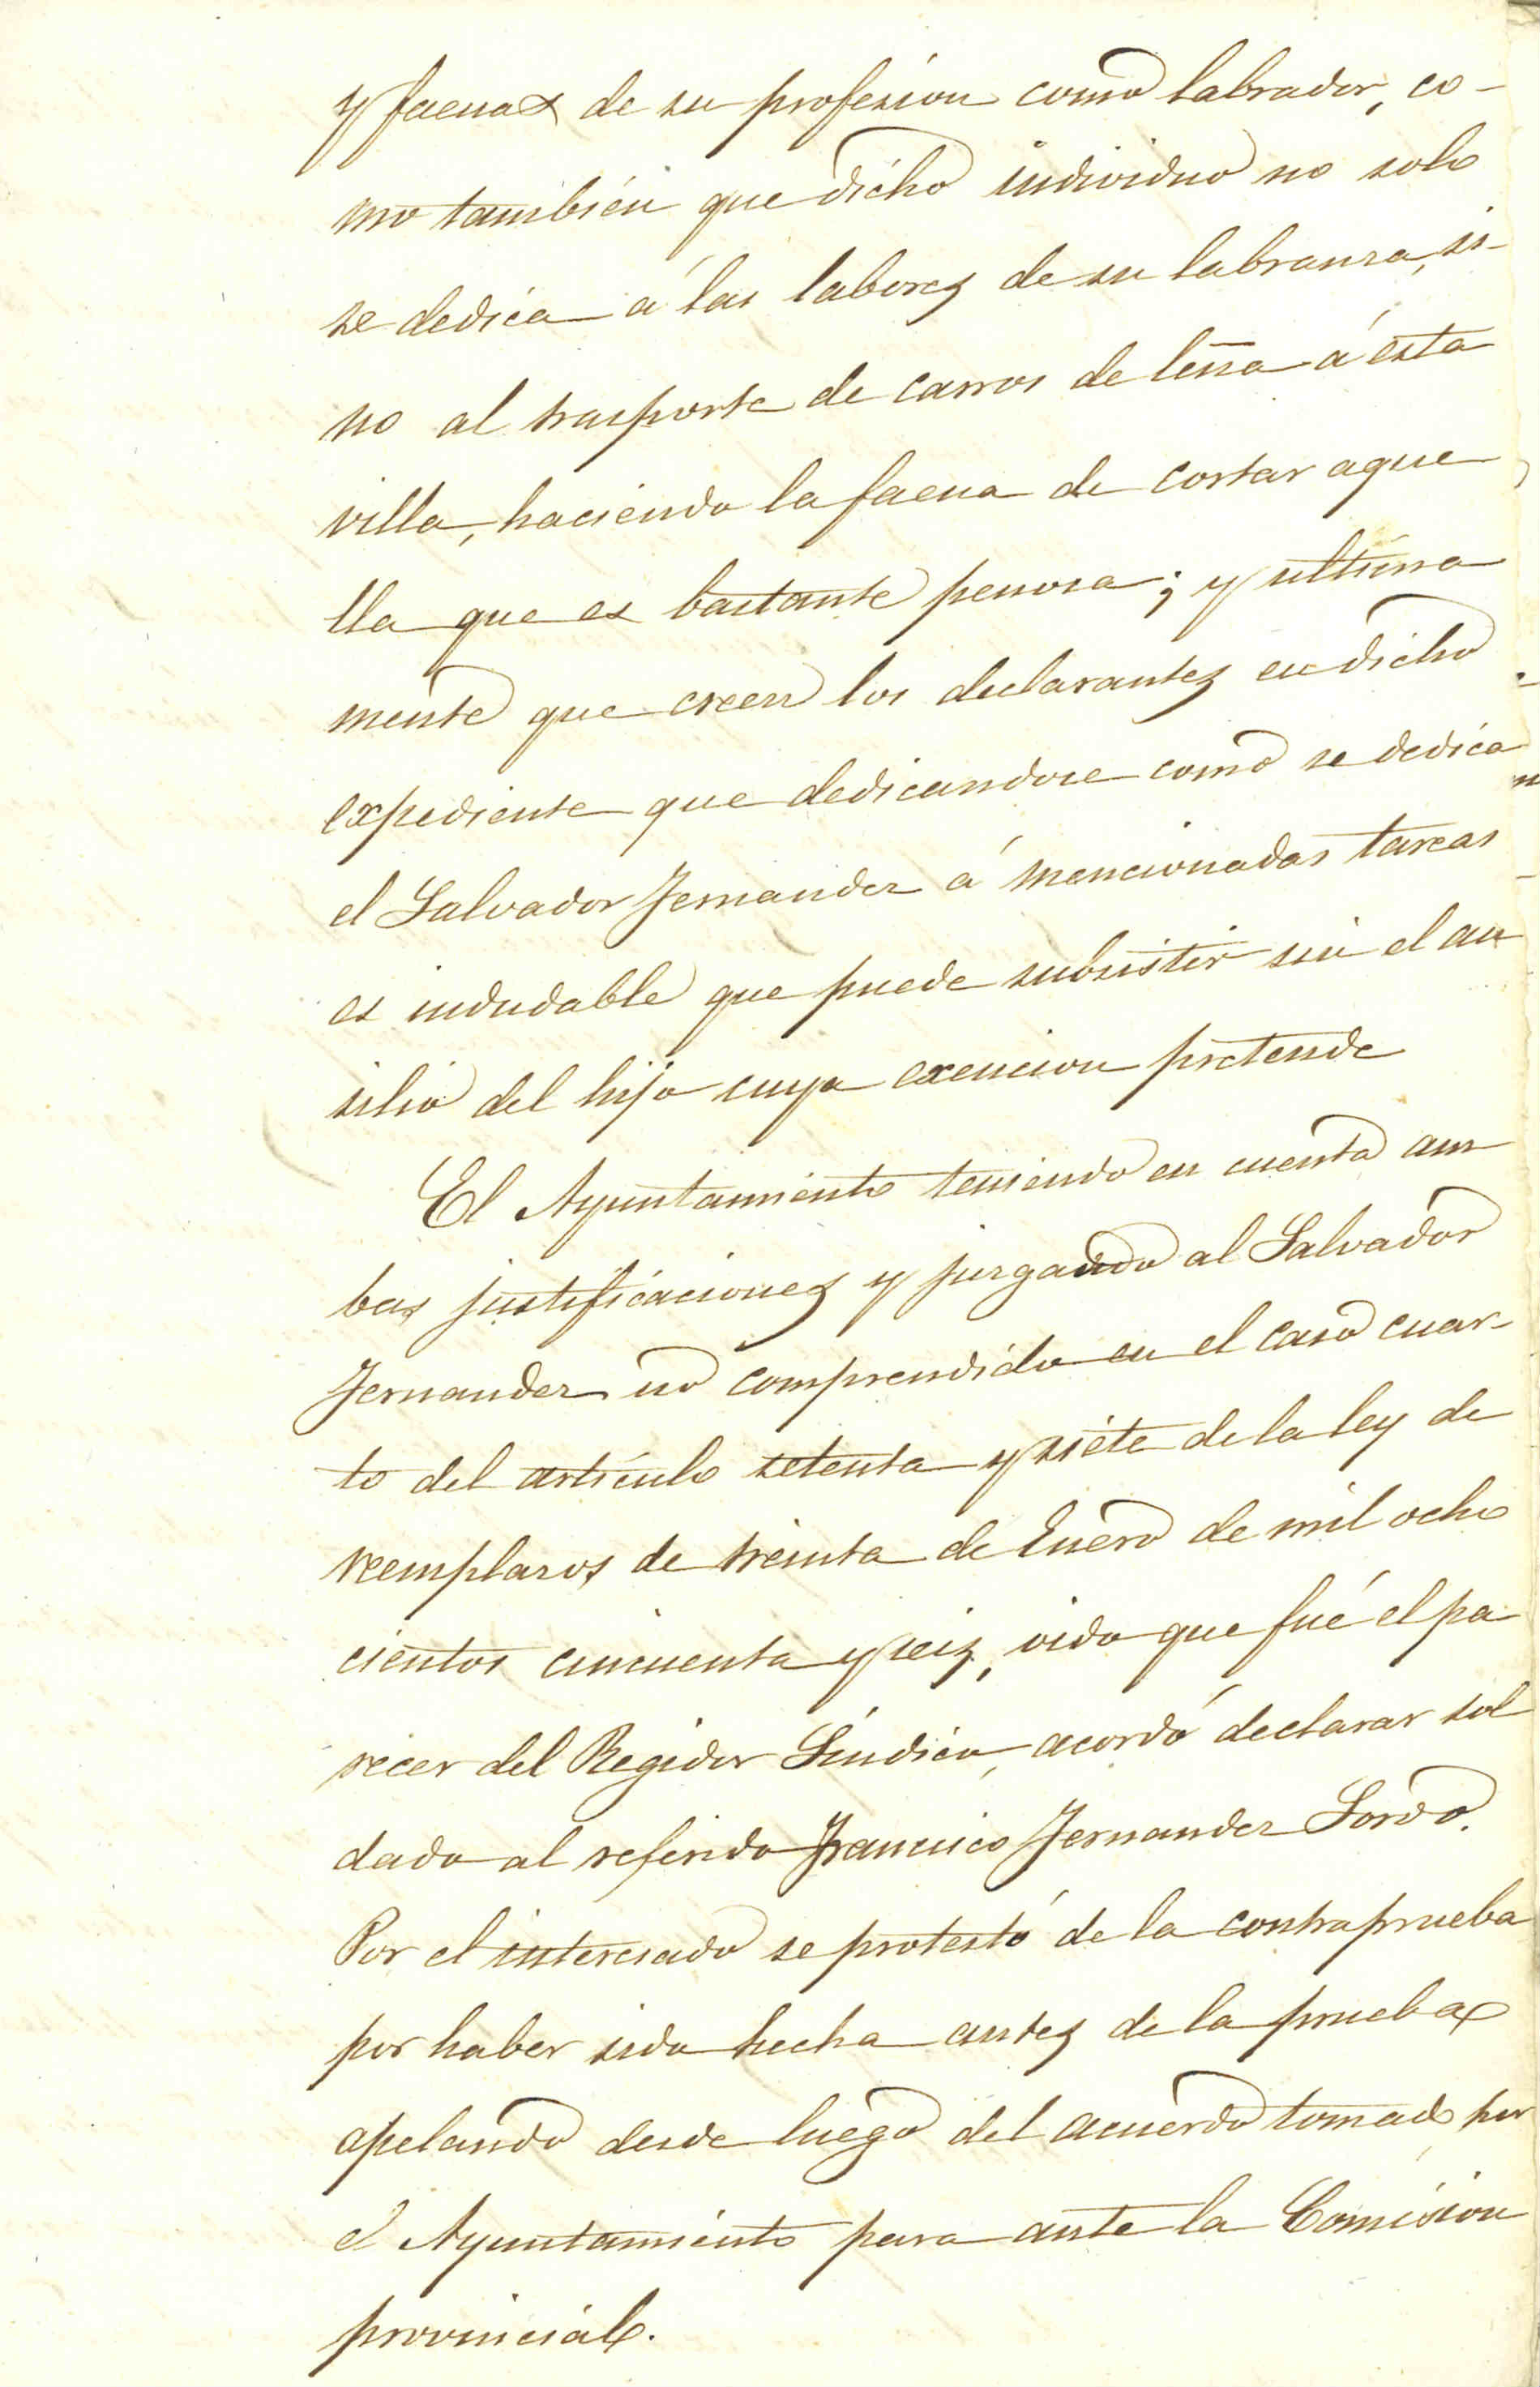 y faenas de su profesion como labrador, co-
mo tambien que dicho individuo no solo
se dedica á las labores de su labranza, si-
no al trasporte de carros de leña á esta
villa, haciendo la faena de cortar aque
lla que es bastante penosa; y ultima
mente que creen los declarantes en dicho
expediente que dedicandose como se dedica
el Salvador Fernandez á mencionadas tareas
es indudable que puede subsistir sin el au
silio del hijo cuya exencion pretende
El Ayuntamiento teniendo en cuenta am
bas justificaciones y juzgando al Salvador
Fernandez no comprendido en el caso cuar-
to del artículo setenta y siete de la ley de
reemplazos de treinta de Enero de mil ocho
cientos cincuenta y seis, oido que fué el pa
recer del Regidor Síndico, acordó declarar sol
dado al referido Francisco Fernandez Sordo.
Por el interesado se protestó de la contraprueba
por haber sido hecha antes de la prueba
apelando desde luego del acuerdo tomado por
el Ayuntamiento para ante la Comision
provincial.